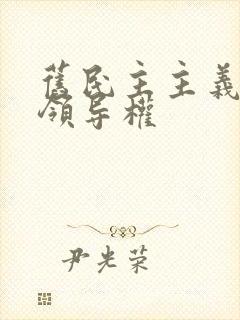 舊民主主義
領导權
尹光荣